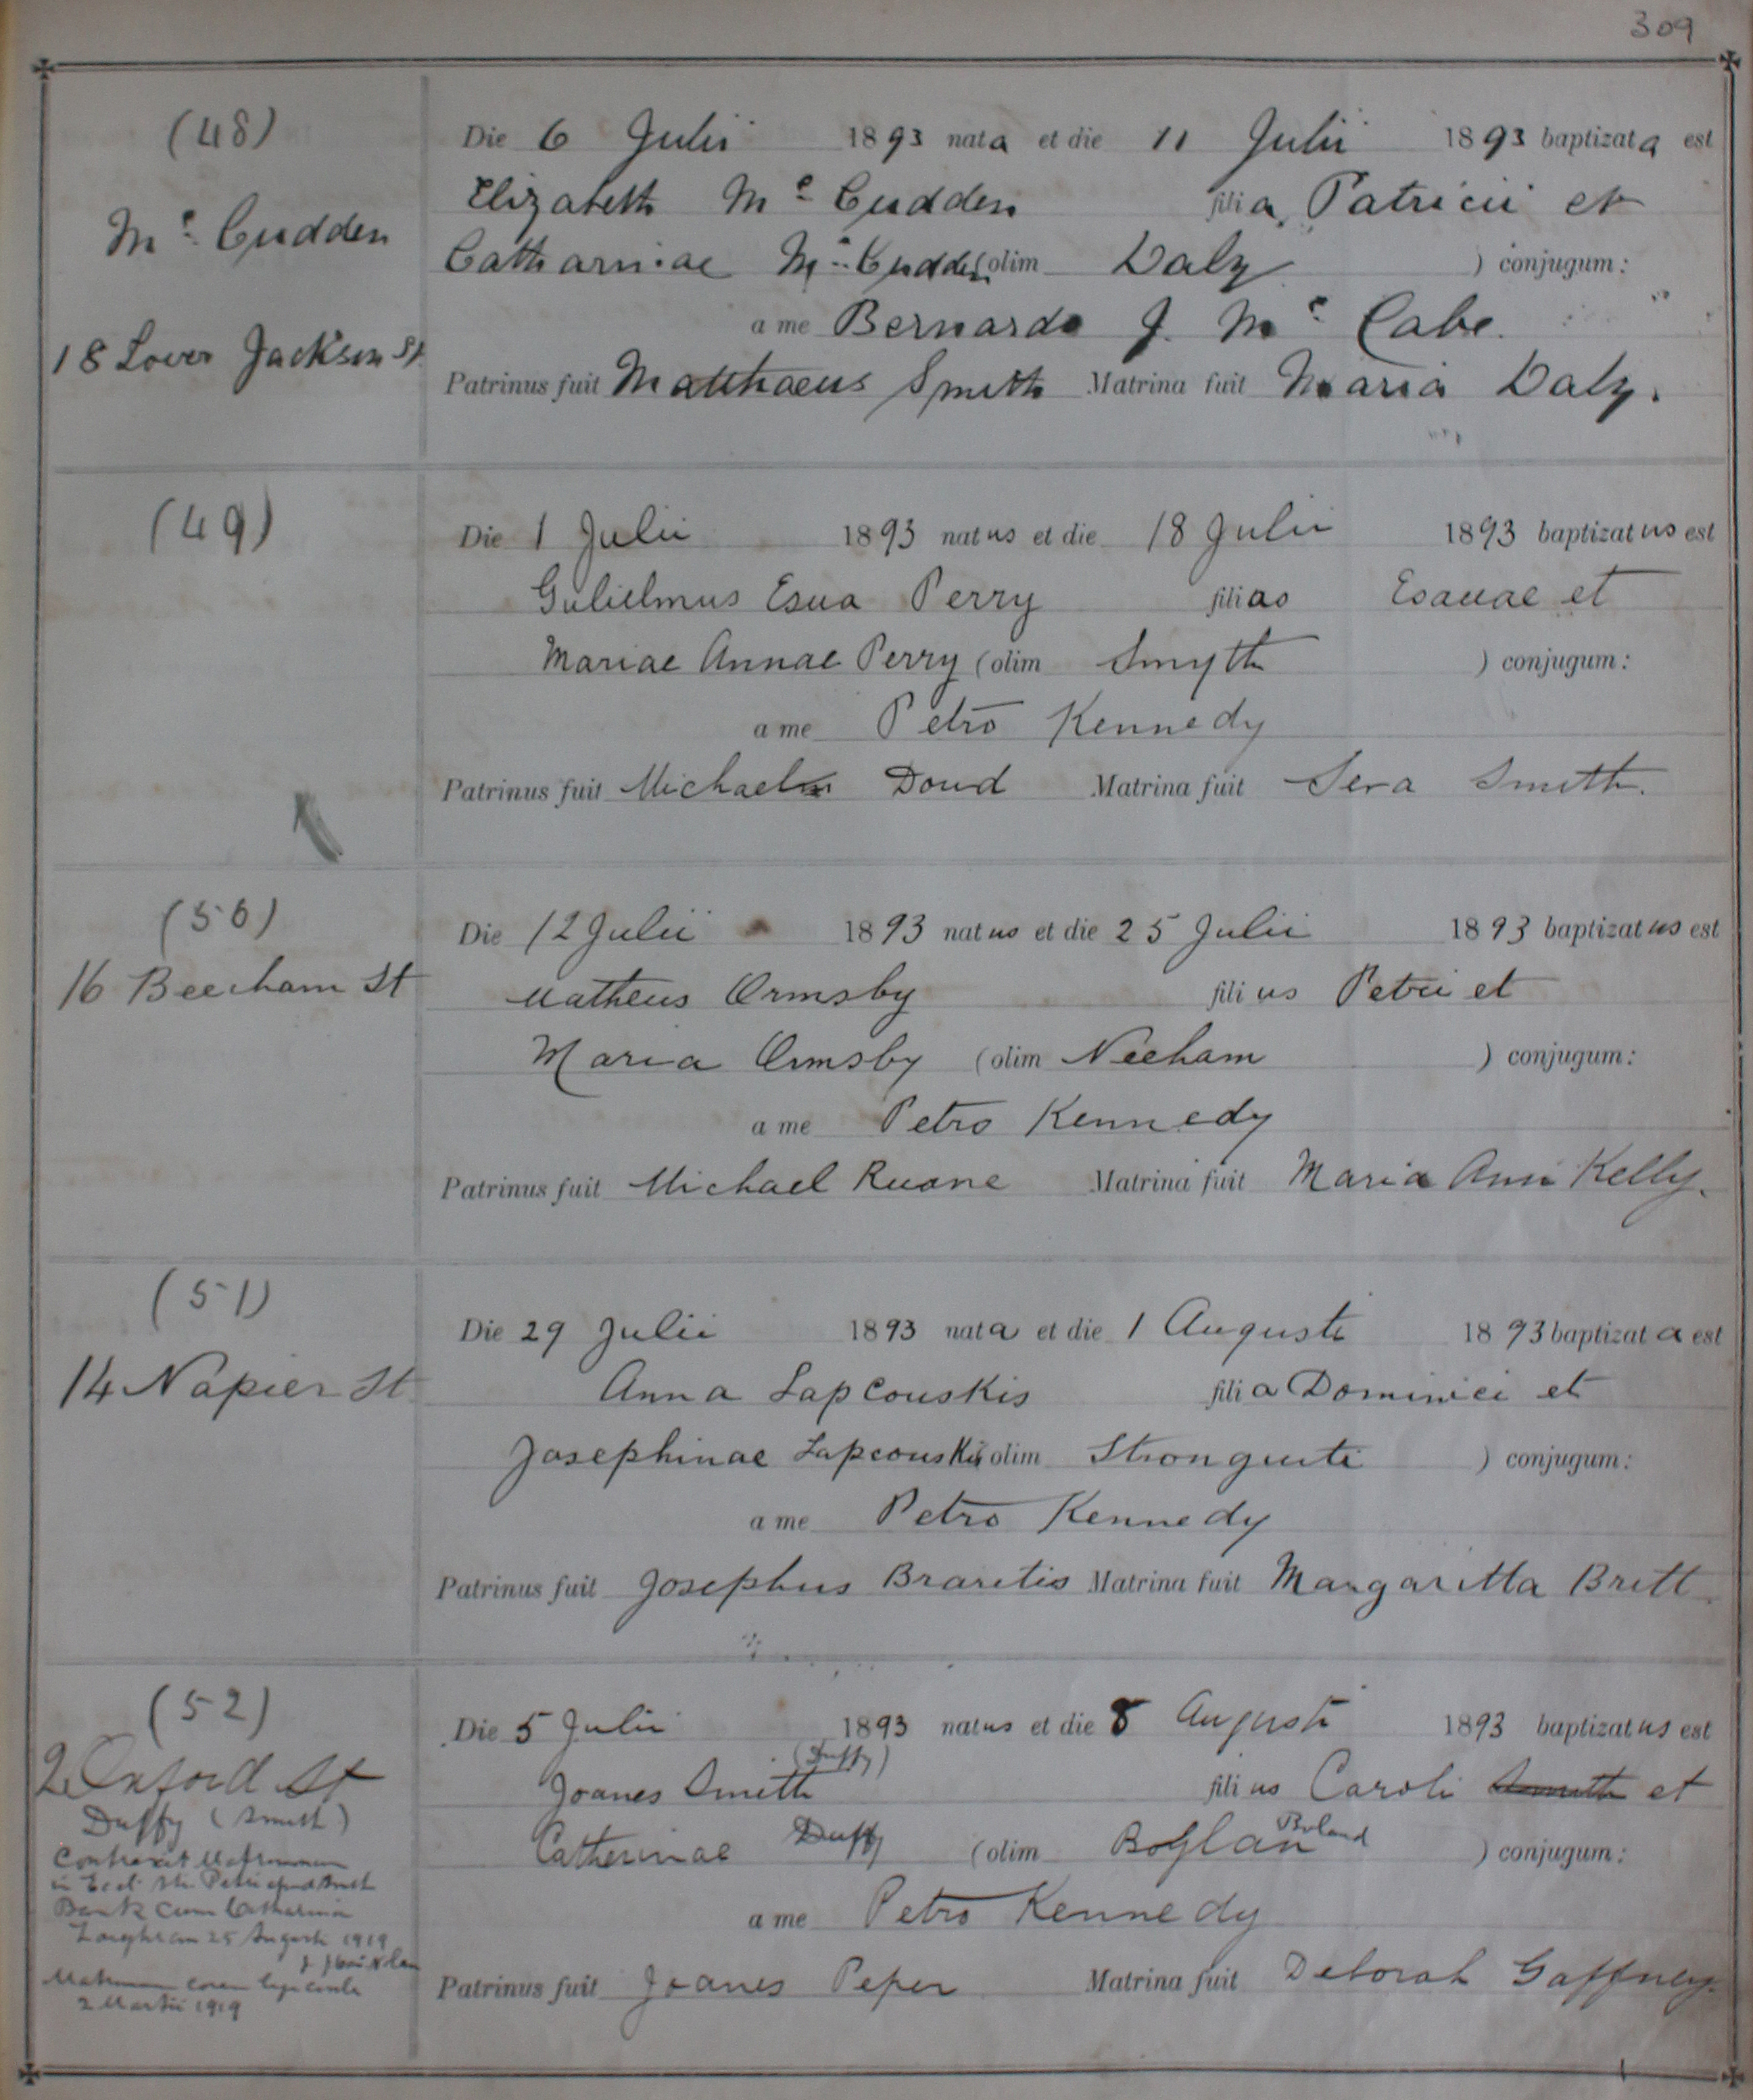 309
(48)
Mc Cudden
18 Lover Jackson St
Die 6 Julii 1893 nata et die 11 Julii 1893 baptizata est
Elizabeth Mc Cudden filia Patricii et
Catharniae Mc Cudden (olim Daly ) conjugum:
a me Bernardo J. Mc Cabe.
Patrinus fuit Matthaeus Smith Matrina fuit Maria Daly.
(49)
Die 1 Julii 1893 natus et die 18 Julii 1893 baptizatus est
Gulielmus Esua Perry filias Esauae et
Mariae Annae Perry (olim Smyth ) conjugum:
a me Petro Kennedy
Patrinus fuit Michael Doud Matrina fuit Sera Smith.
(50)
16 Beecham St
Die 12 Julii 1893 natus et die 25 Julii 1893 baptizatus est
Matheus Ormsby filius Petri et
Maria Ormsby (olim Neeham ) conjugum:
a me Petro Kennedy
Patrinus fuit Michael Ruane Matrina fuit Maria Ann Kelly.
(51)
14 Napier St
Die 29 Julii 1893 nata et die 1 Augusti 1893 baptizata est
Anna Lapcouskis filia Dominici et
Josephinae Lapcouskis (olim Stronguiti ) conjugum:
a me Petro Kennedy
Patrinus fuit Josephus Braretis Matrina fuit Margaritta Britt
(52)
2 Oxford St
Duffy (Smith)
Contraxit Matrimonium
in Eccl. Sti. Petri apud
Bank cum Catharina
25 Augusti 1919
Matrimon coram lege civile
2 Martii 1919
Die 5 Julii 1893 natus et die 8 Augusti 1893 baptizatus est
(Duffy)
Joanes Smith filius Caroli Smith et
Catherinae Duffy (olim Boylan Boland ) conjugum:
a me Petro Kennedy
Patrinus fuit Joanes Peper Matrina fuit Deborah Gaffney.